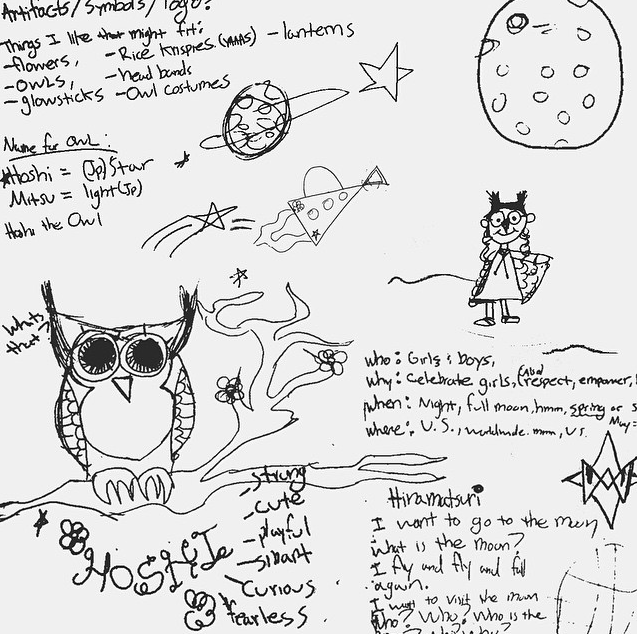 Artifacts/Symbols/logo:
Things I like that might fit:
-flowers, -Rice Krispies (YAAAS) -lanterns
-OWLS, -head bands
-glowsticks -Owl costumes
Name for Owl:
Hoshi = (Jp) Star
Mitsu = light (Jp)
Hoshi the Owl
Whats that?
HOSHI
-strong
-cute
-playful
-smart
-curious
-fearless
who: Girls & boys,
why: Celebrate girls, (respect, empower,
when: Night, full moon, hmm, spring or
May =
where: U.S., worldwide. mmm, U.S.
Hinamatsuri
I want to go to the moon
What is the moon?
I fly and fly and fall
again.
I want to visit the moon
Who? Who? Who is the